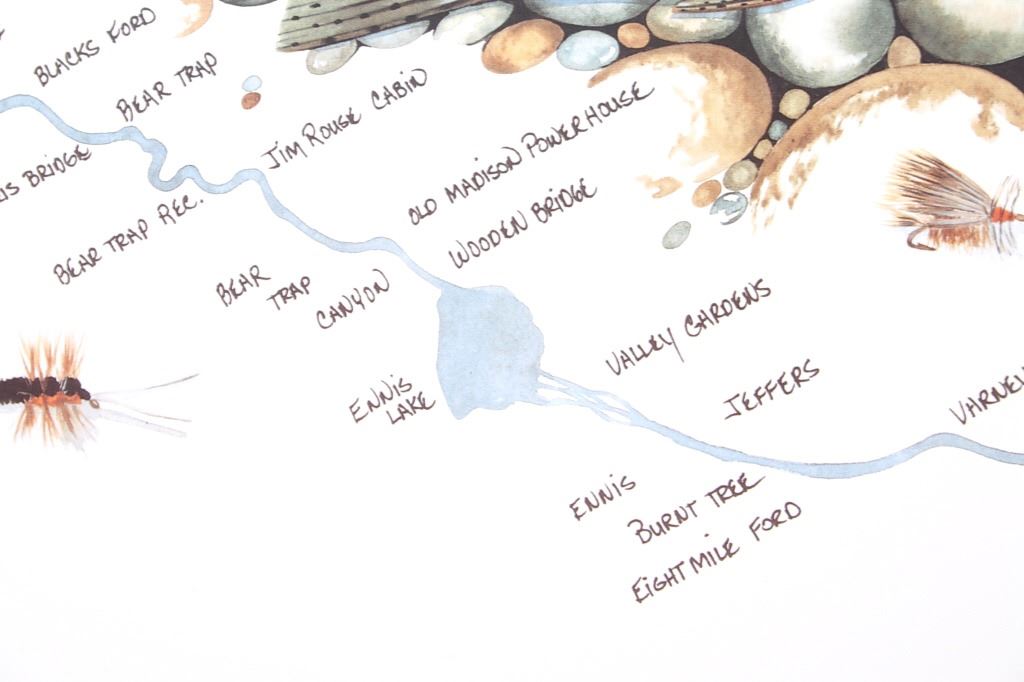 BLACKS FORD
BEAR TRAP
JIM ROUSE CABIN
OLD MADISON POWERHOUSE
WOODEN BRIDGE
BRIDGE
BEAR TRAP REC.
BEAR
TRAP
CANYON
ENNIS
LAKE
VALLEY GARDENS
JEFFERS
ENNIS
BURNT TREE
EIGHT MILE FORD